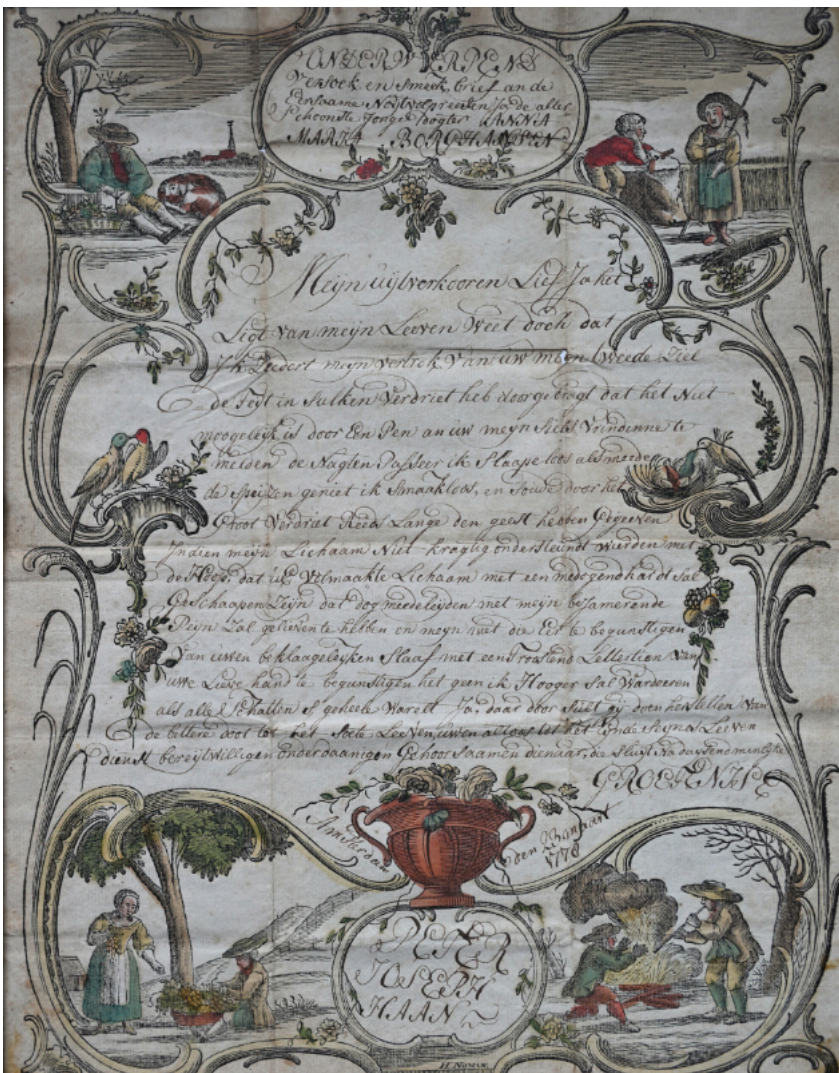 ONDERWERPEN
Versoek en Smeek brief an de
Eersaame
Schoonste Jonge Dogter ANNA
MARIA
Meijn uijtverkooren Lief Ja het
Ligt van meijn Leeven Weet doch dat
Ik Zeedert meijn vertrek Van uw meijn tweede Ziel
de Teijt in Sulken Verdriet heb doorgebragt dat het Niet
moogelijk is door Een Pen an uw meijn Ziels Vrindinne te
melden de Nagten Passeer ik Slaapeloos als meede
de Speijzen geniet ik Smaakloos, en Souwe door het
Groot Verdriet Reeds Lange den geest hebben Gegeeven
Indien meijn Lichaam Niet kragtig ondersteunt wurden met
de Hoop, dat uE Volmaakte Lichaam met een
Geschaapen Zeijn dat dog meedeleijden met meijn bejamerende
Peijn Zal gelieven te hebben en meijn met die Eer te begunstigen
Van uwen beklaagelijken Slaaf met een Troostend Lettertien van
uwe Lieve hand te begunstigen het geen ik Hooger Sal Wardeeren
als alle Schatten S geheele Warelt Ja, daar door Sult gij doen herstellen Van
de bittere doot tot het Soete Leeven, uwen altoos tot het Eynde Seyns Leeven
dienst bereijtwilligen onderdaanigen Gehoorsaamen dienaar, die Sluijt na duysend minlijke
GROETENISE
Amsterdam
den
1778
PETER
JOSEPH
HAAN
H NUMAN